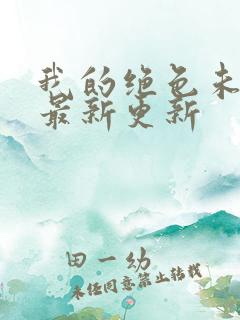 我的绝色未
最新更新
田一幼
未经同意禁止转载